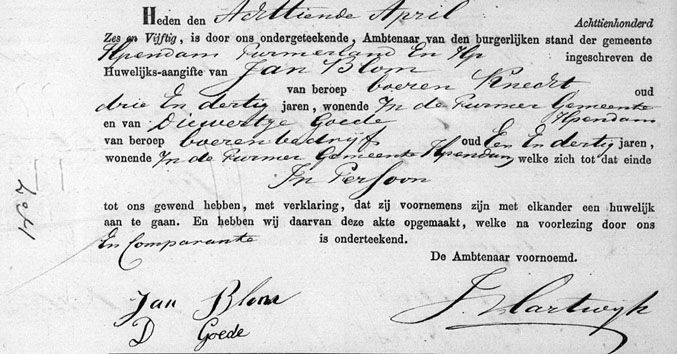 Heden den Achttiende April Achttienhonderd
Zes en Vijftig, is door ons ondergeteekende, Ambtenaar van den burgerlijken stand der gemeente
Ilpendam Purmerland En Ilp ingeschreven de
Huwelijks-aangifte van Jan Blom
van beroep boeren Knecht oud
drie En dertig jaren, wonende In de Purmer Gemeente
Ilpendam
en van Dieuwertje Goede
van beroep boerenbedrijf oud Een En dertig jaren,
wonende In de Purmer Gemeente Ilpendam, welke zich tot dat einde
In Persoon
tot ons gewend hebben, met verklaring, dat zij voornemens zijn met elkander een huwelijk
aan te gaan. En hebben wij daarvan deze akte opgemaakt, welke na voorlezing door ons
En Comparante is onderteekend.
De Ambtenaar voornoemd.
Jan Blom
D Goede
J. Hartwijk